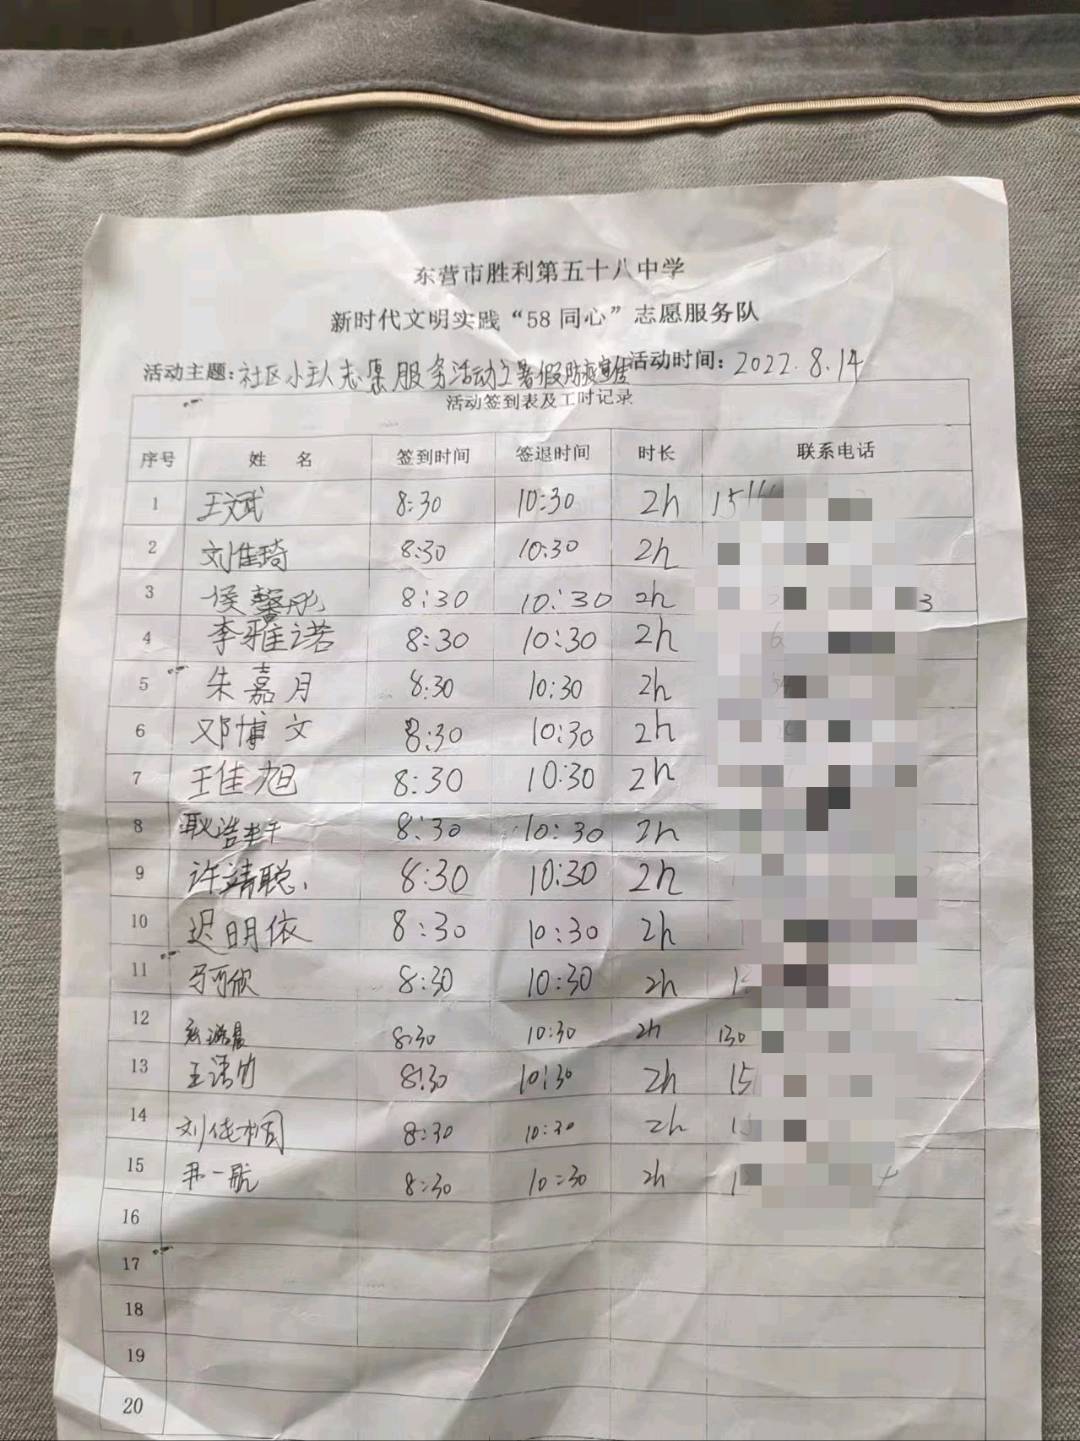 东营市胜利第五十八中学
新时代文明实践“58同心”志愿服务队
活动主题:社区小主人志愿服务活动之暑假防疫宣传 活动时间:2022.8.14
活动签到表及工时记录
序号 姓 名 签到时间 签退时间 时长 联系电话
1 王斌 8:30 10:30 2h 15
2 刘佳琦 8:30 10:30 2h
3 侯馨彤 8:30 10:30 2h 3
4 李雅诺 8:30 10:30 2h
5 朱嘉月 8:30 10:30 2h
6 邓博文 8:30 10:30 2h
7 王佳旭 8:30 10:30 2h
8 耿浩 8:30 10:30 2h
9 许靖聪 8:30 10:30 2h
10 迟明依 8:30 10:30 2h
11 马可欣 8:30 10:30 2h 1
12 8:30 10:30 2h 130
13 王 8:30 10:30 2h 15
14 刘佳桐 8:30 10:30 2h 1
15 一航 8:30 10:30 2h 1
16
17
18
19
20